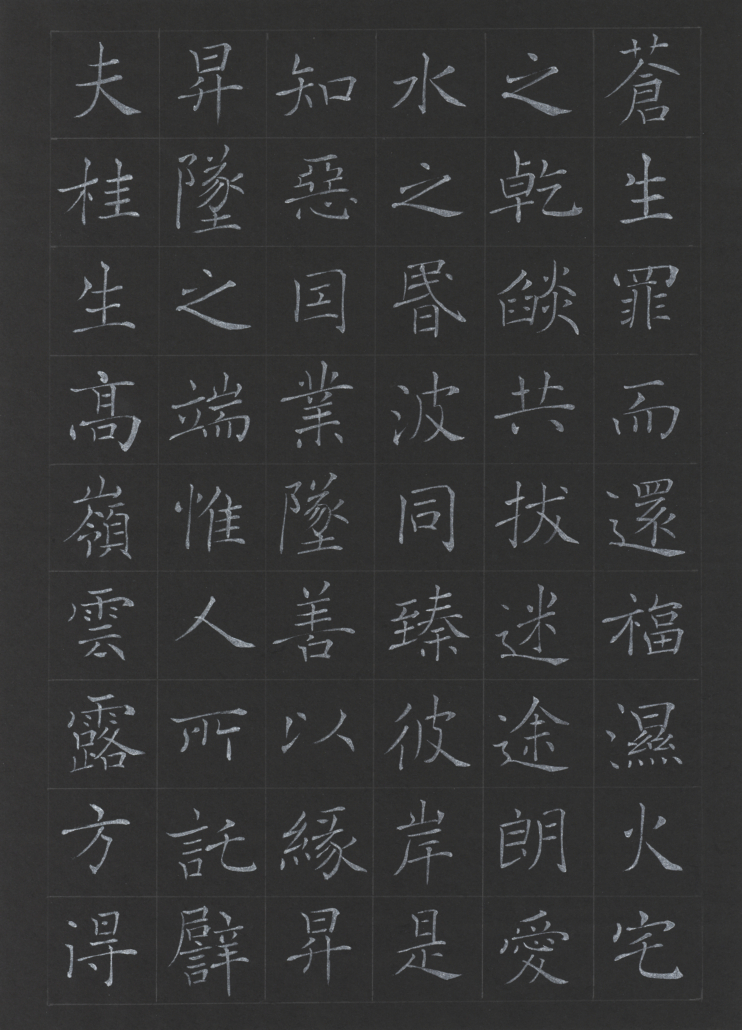 蒼生罪而還福濕火宅
之乾燄共拔迷途朗愛
水之昬波同臻彼岸是
知惡因業墜善以緣昇
昇墜之端惟人所託譬
夫桂生高嶺雲露方得